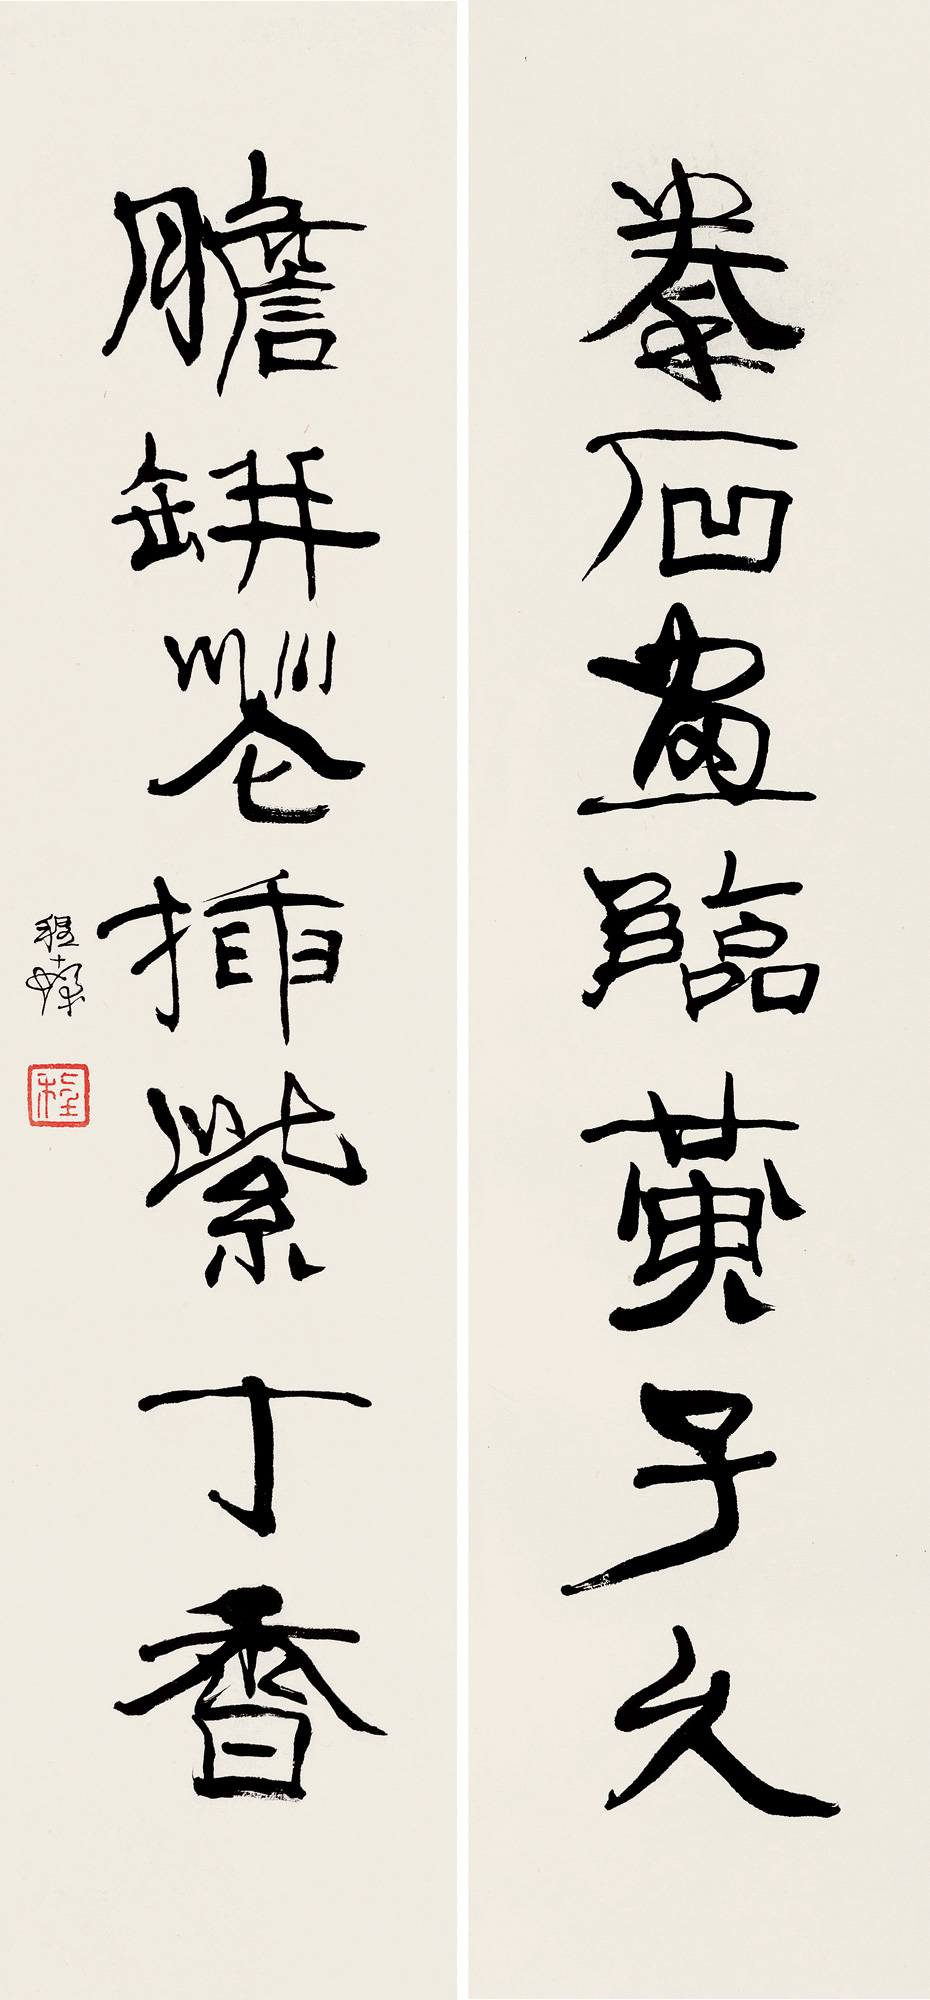 拳石畫臨黃子久
膽缾花插紫丁香
程十髮
程